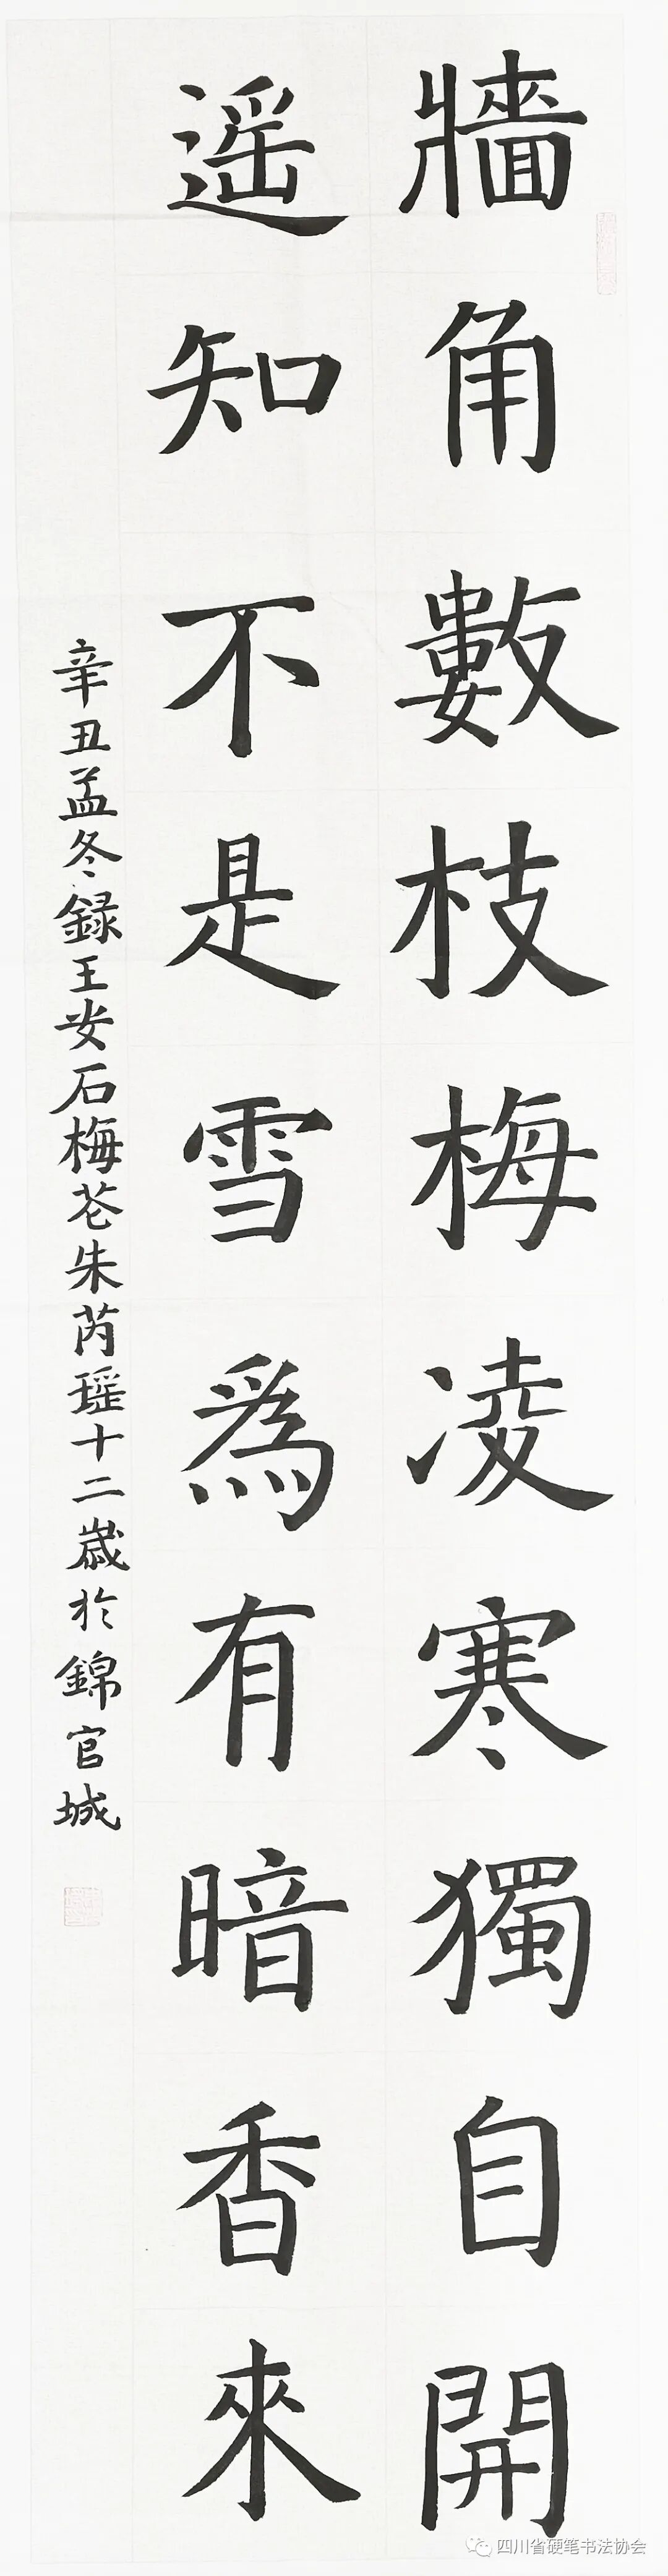 牆角數枝梅凌寒獨自開
遥知不是雪爲有暗香來
辛丑孟冬録王安石梅花朱芮瑶十二歲於錦官城
四川省硬笔书法协会